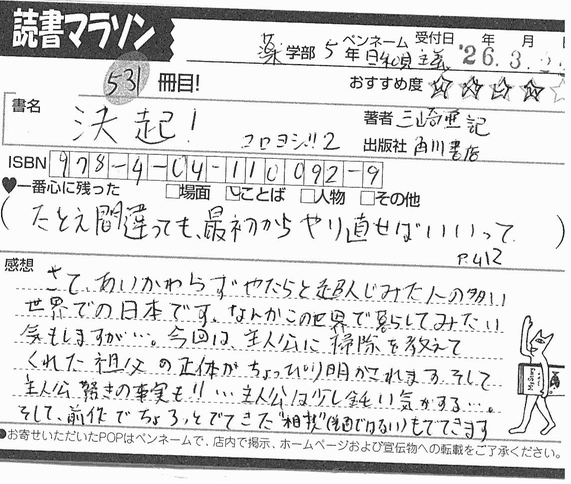 読書マラソン
薬学部 5年 ペンネーム 日和見主義 受付日 '26.3. 年 月
531冊目! おすすめ度 ☆☆☆☆☆
書名 決起! コロヨシ!!2
著者 三崎亜記
出版社 角川書店
ISBN 978-4-04-110092-9
♥一番心に残った □場面 ☑ことば □人物 □その他
(たとえ間違っても、最初からやり直せばいいって)
P.412
感想 さて、あいかわらずやたらと超人じみた人の多い
世界での日本です。なんかこの世界で暮らしてみたい
気もしますが…。今回は主人公に掃除を教えて
くれた祖父の正体がちょっぴり明かされます。そして
主人公驚きの事実も!!…主人公は少し鈍い気がする…。
そして、前作でちょろっとでてきた"相撲"(ではない)もでてきます
●お寄せいただいたPOPはペンネームで、店内で掲示、ホームページおよび宣伝物への転載をご了承ください。